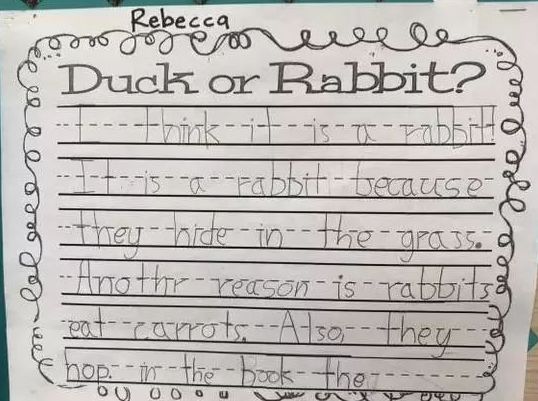 Rebecca
Duck or Rabbit?
I think it is a rabbit!
It is a rabbit because
they hide in the grass.
Anothr reason is rabbits
eat carrots. Also, they
hop. in the book the